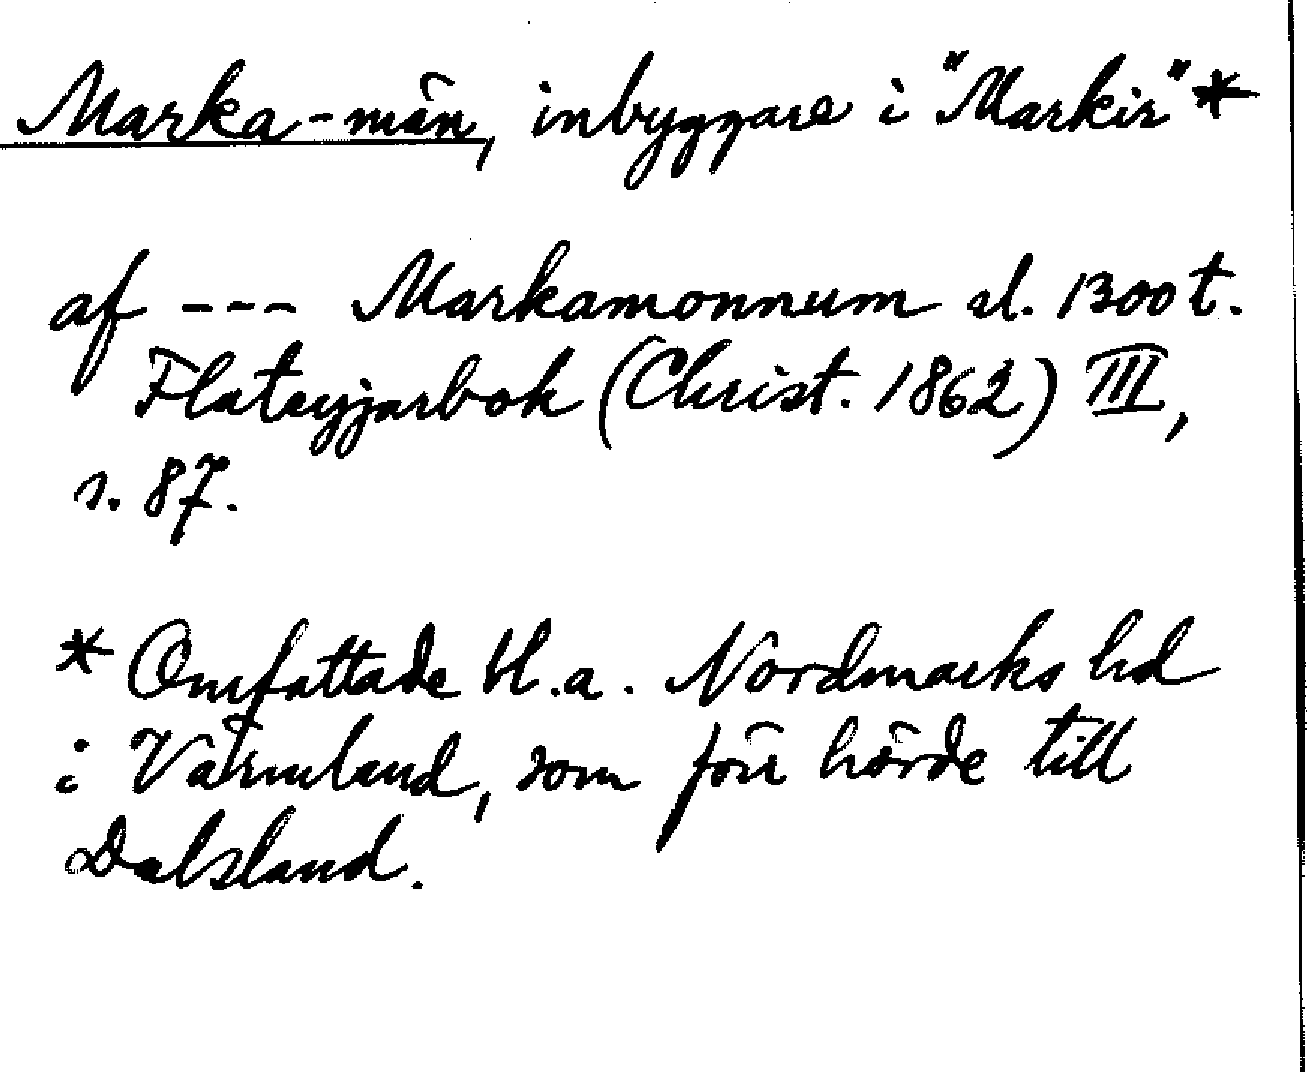 Marka-män, inbyggare i "Markir"*
af --- Markamonnum sl. 1300 t.
Flateyjarbok (Christ. 1862) III,
s. 87.
* Omfattade bl.a. Nordmarks hd
i Värmland, som förr hörde till
Dalsland.